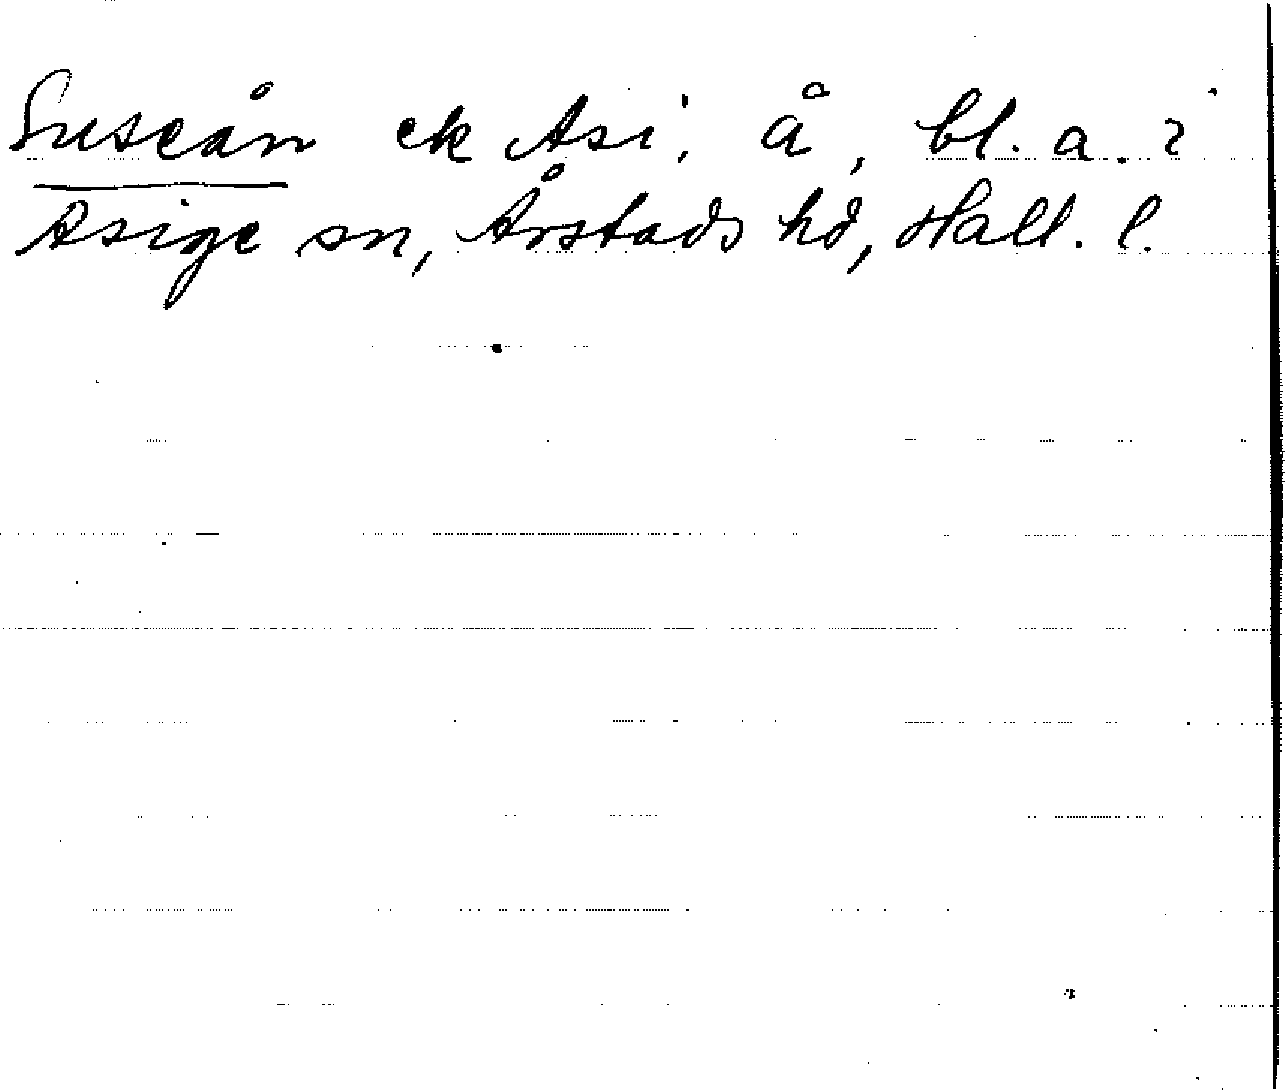 Suseån ek Asi, å, bl. a. i
Asige sn, Årstads hd, Hall. l.